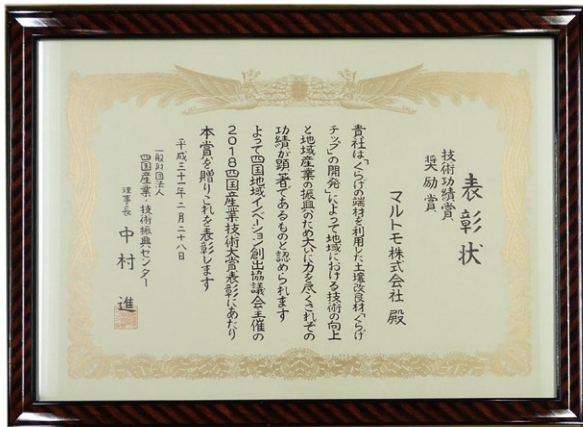 表彰状
技術功績賞
奨励賞
マルトモ株式会社 殿
貴社は「くらげの端材を利用した土壌改良材「くらげ
チップ」の開発」によって地域における技術の向上
と地域産業の振興のため大いに力を尽くされその
功績が顕著であるものと認められます
よって四国地域イノベーション創出協議会主催の
2018四国産業技術大賞表彰にあたり
本賞を贈りこれを表彰します
平成三十一年二月二十八日
一般財団法人
四国産業・技術振興センター
理事長 中村 進